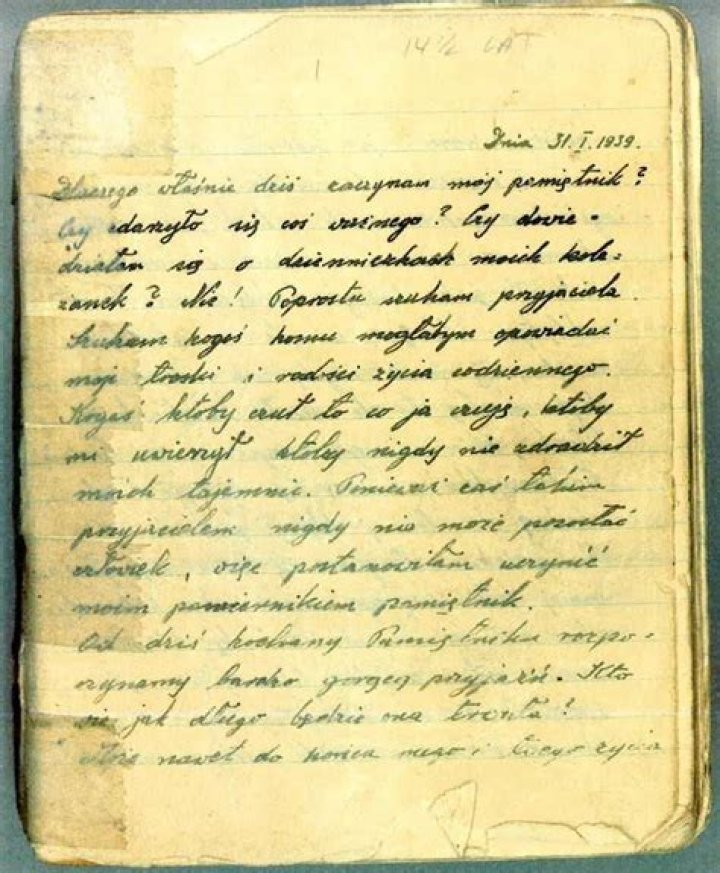 14 ½ LAT
Dnia 31.I.1939.
Dlaczego właśnie dziś zaczynam mój pamiętnik?
Czy zdarzyło się coś ważnego? Czy dowie-
działam się o dzienniczkach moich kole-
żanek? Nie! Poprostu szukam przyjaciela.
Szukam kogoś komu mogłabym opowiadać
moje troski i radości życia codziennego.
Kogoś któby czuł to co ja czuję, któby
mi uwierzył któby nigdy nie zdradził
moich tajemnic. Ponieważ zaś takim
przyjacielem nigdy nie może pozostać
człowiek, więc postanowiłam uczynić
moim powiernikiem pamiętnik.
Od dziś kochany Pamiętniku rozpo-
czynamy bardzo gorącą przyjaźń. Kto
wie jak długo będzie ona trwała?
Może nawet do końca mego i Twego życia